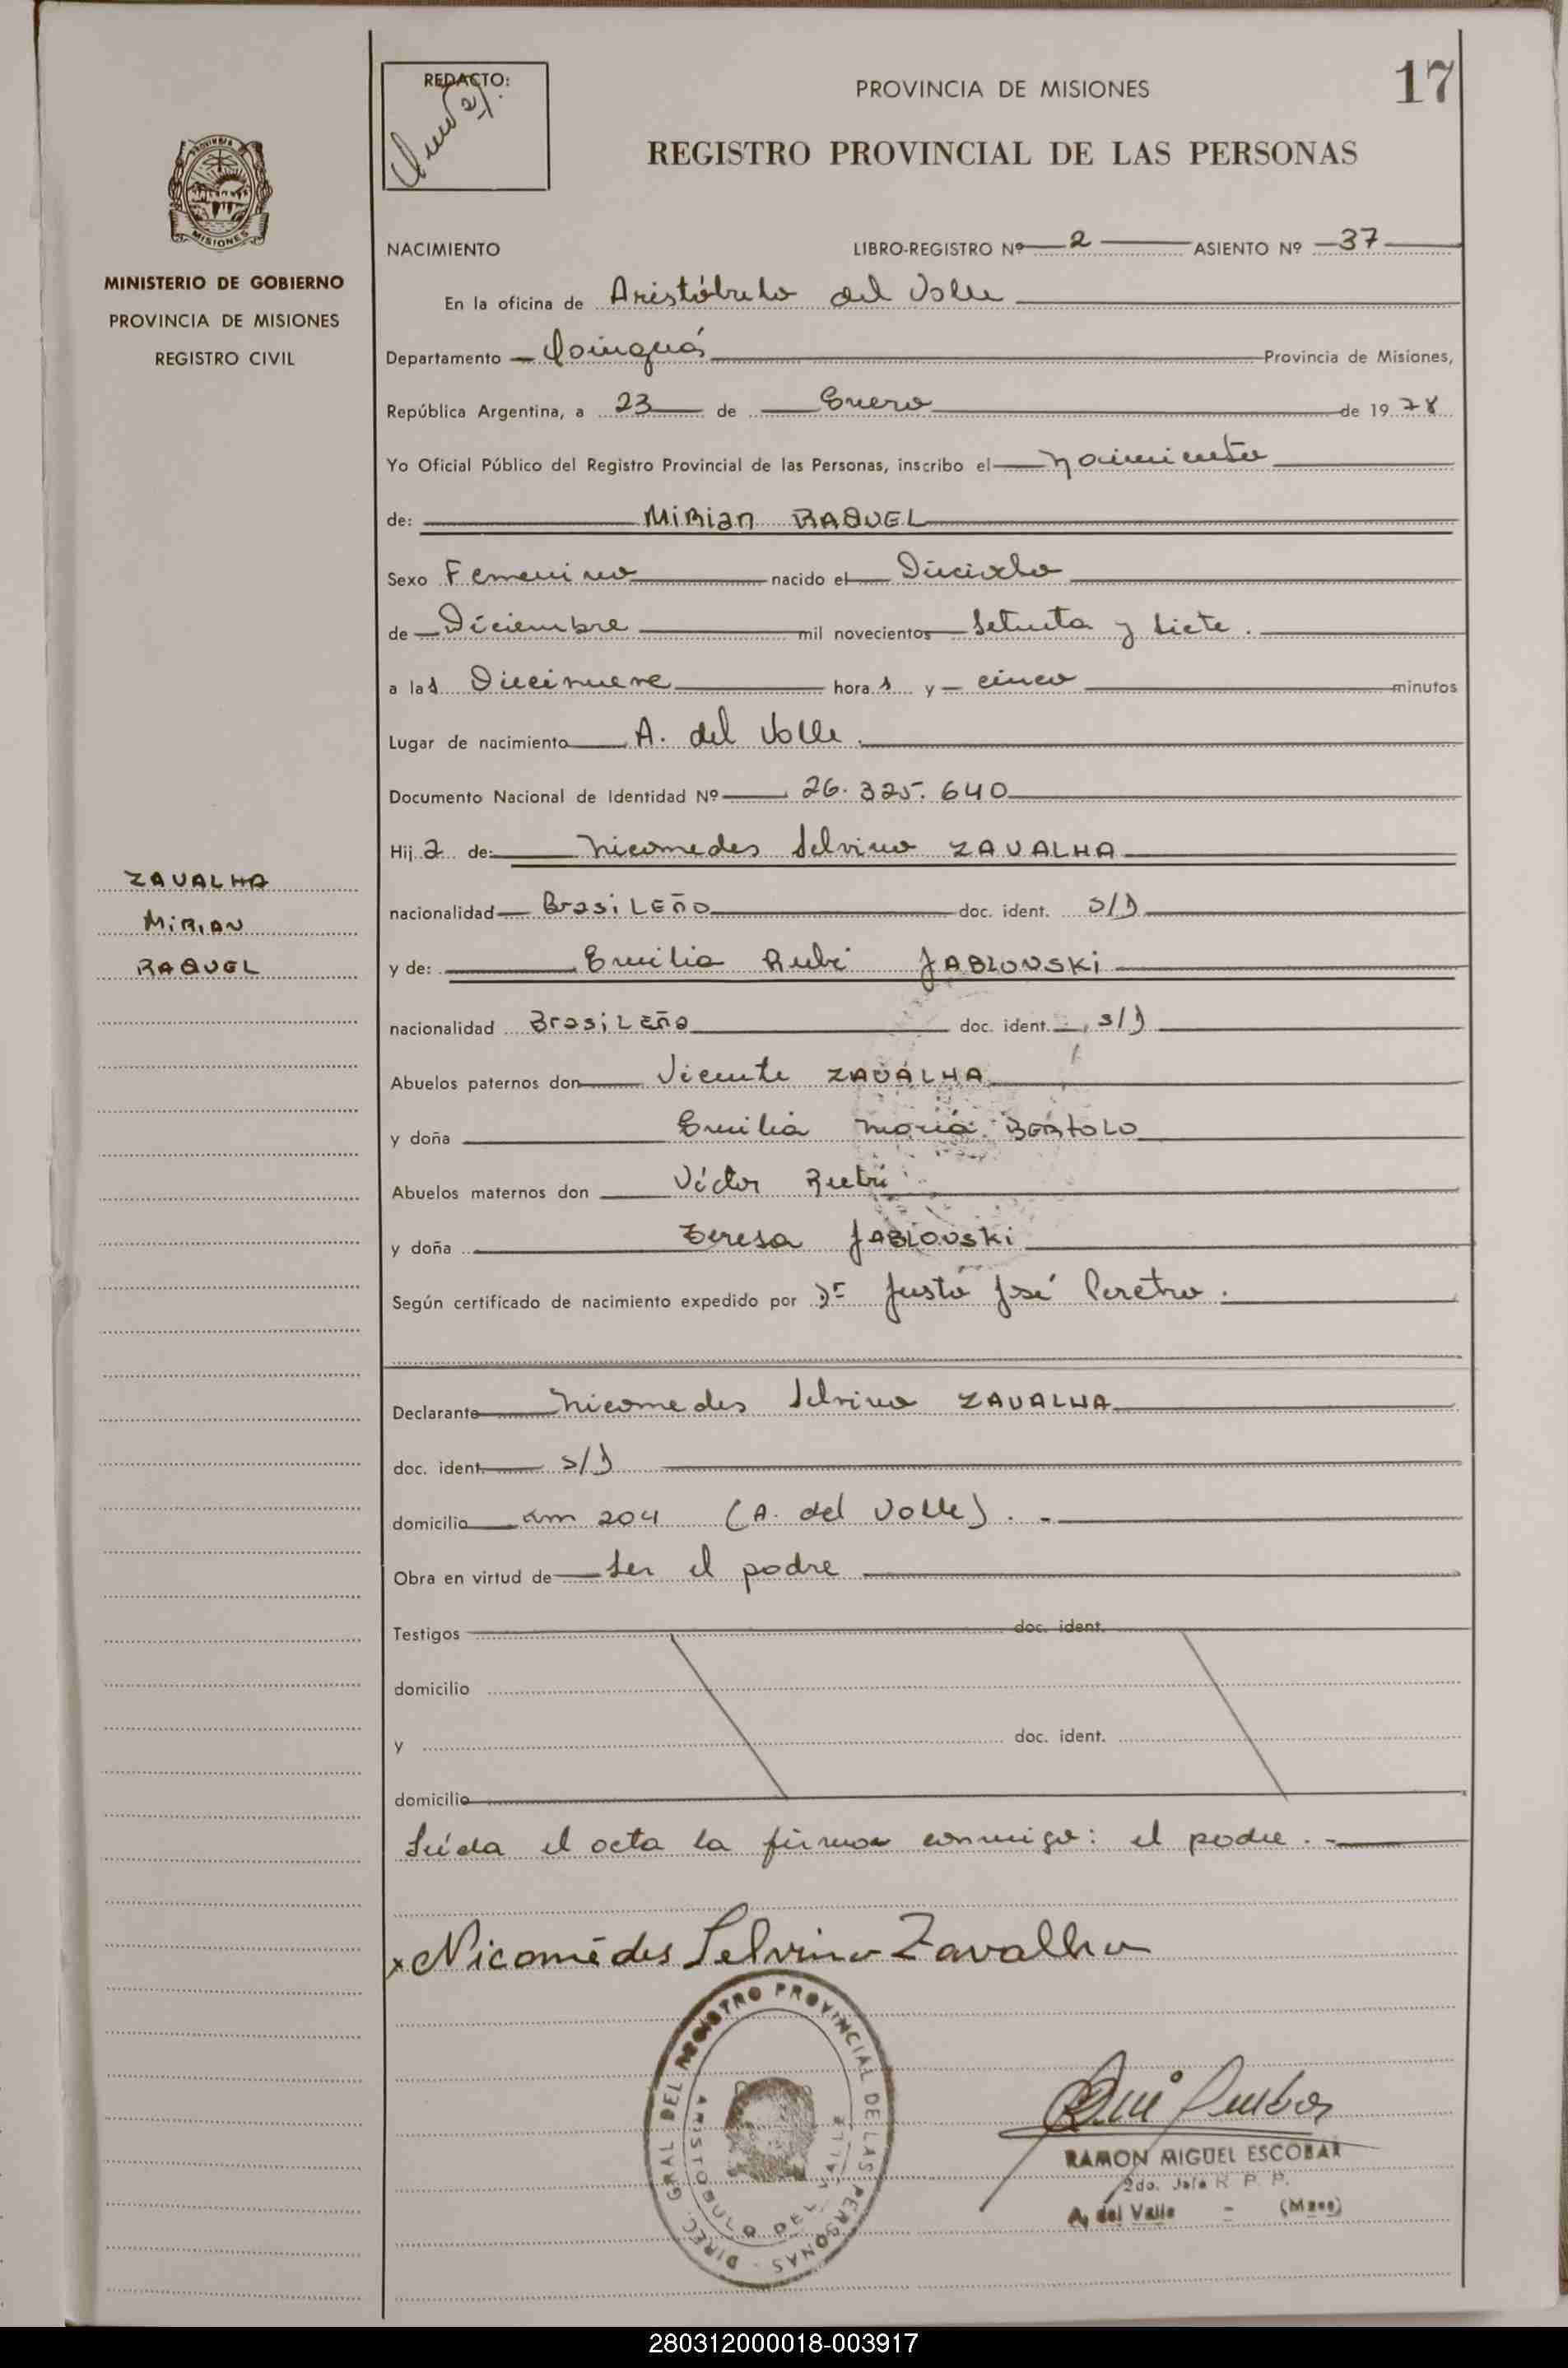 REDACTO:
PROVINCIA DE MISIONES
17
REGISTRO PROVINCIAL DE LAS PERSONAS
PROVINCIA
MISIONES
MINISTERIO DE GOBIERNO
PROVINCIA DE MISIONES
REGISTRO CIVIL
NACIMIENTO LIBRO-REGISTRO Nº 2 ASIENTO Nº 37
En la oficina de Aristóbulo del Valle
Departamento Cainguás Provincia de Misiones,
República Argentina, a 23 de Enero de 1978
Yo Oficial Público del Registro Provincial de las Personas, inscribo el nacimiento
de: MIRian RAQUEL
Sexo Femenino nacido el Dieciocho
de Diciembre mil novecientos Setenta y siete.
a las Diecinueve horas y cinco minutos
Lugar de nacimiento A. del Valle.
Documento Nacional de Identidad Nº 26.325.640
Hija de: Nicomedes Selvino ZAVALHA
nacionalidad BrasiLEÑO doc. ident. S/D
y de: Emilia Rubi JABLONSKi
nacionalidad BrasiLEña doc. ident. S/D
Abuelos paternos don Vicente ZAVALHA
y doña Emilia María BERtOLO
Abuelos maternos don Víctor Rubi
y doña Teresa JABLONSKi
Según certificado de nacimiento expedido por Dr Justo José Peretro.
ZAVALHA
MiRIAN
RAQUEL
Declarante Nicomedes Selvino ZAVALHA
doc. ident. S/D
domicilio Km 204 (A. del Valle). -
Obra en virtud de ser el padre
Testigos doc. ident.
domicilio
y doc. ident.
domicilio
Leída el acta la firma conmigo: el padre. -
x Nicomédes Selvino Zavalha
DIREC. GRAL DEL REGISTRO PROVINCIAL DE LAS PERSONAS -
ARISTOBULO DEL VALLE
RAMON MIGUEL ESCOBAR
2do. Jefe R. P. P.
A. del Valle - (Mnes)
280312000018-003917